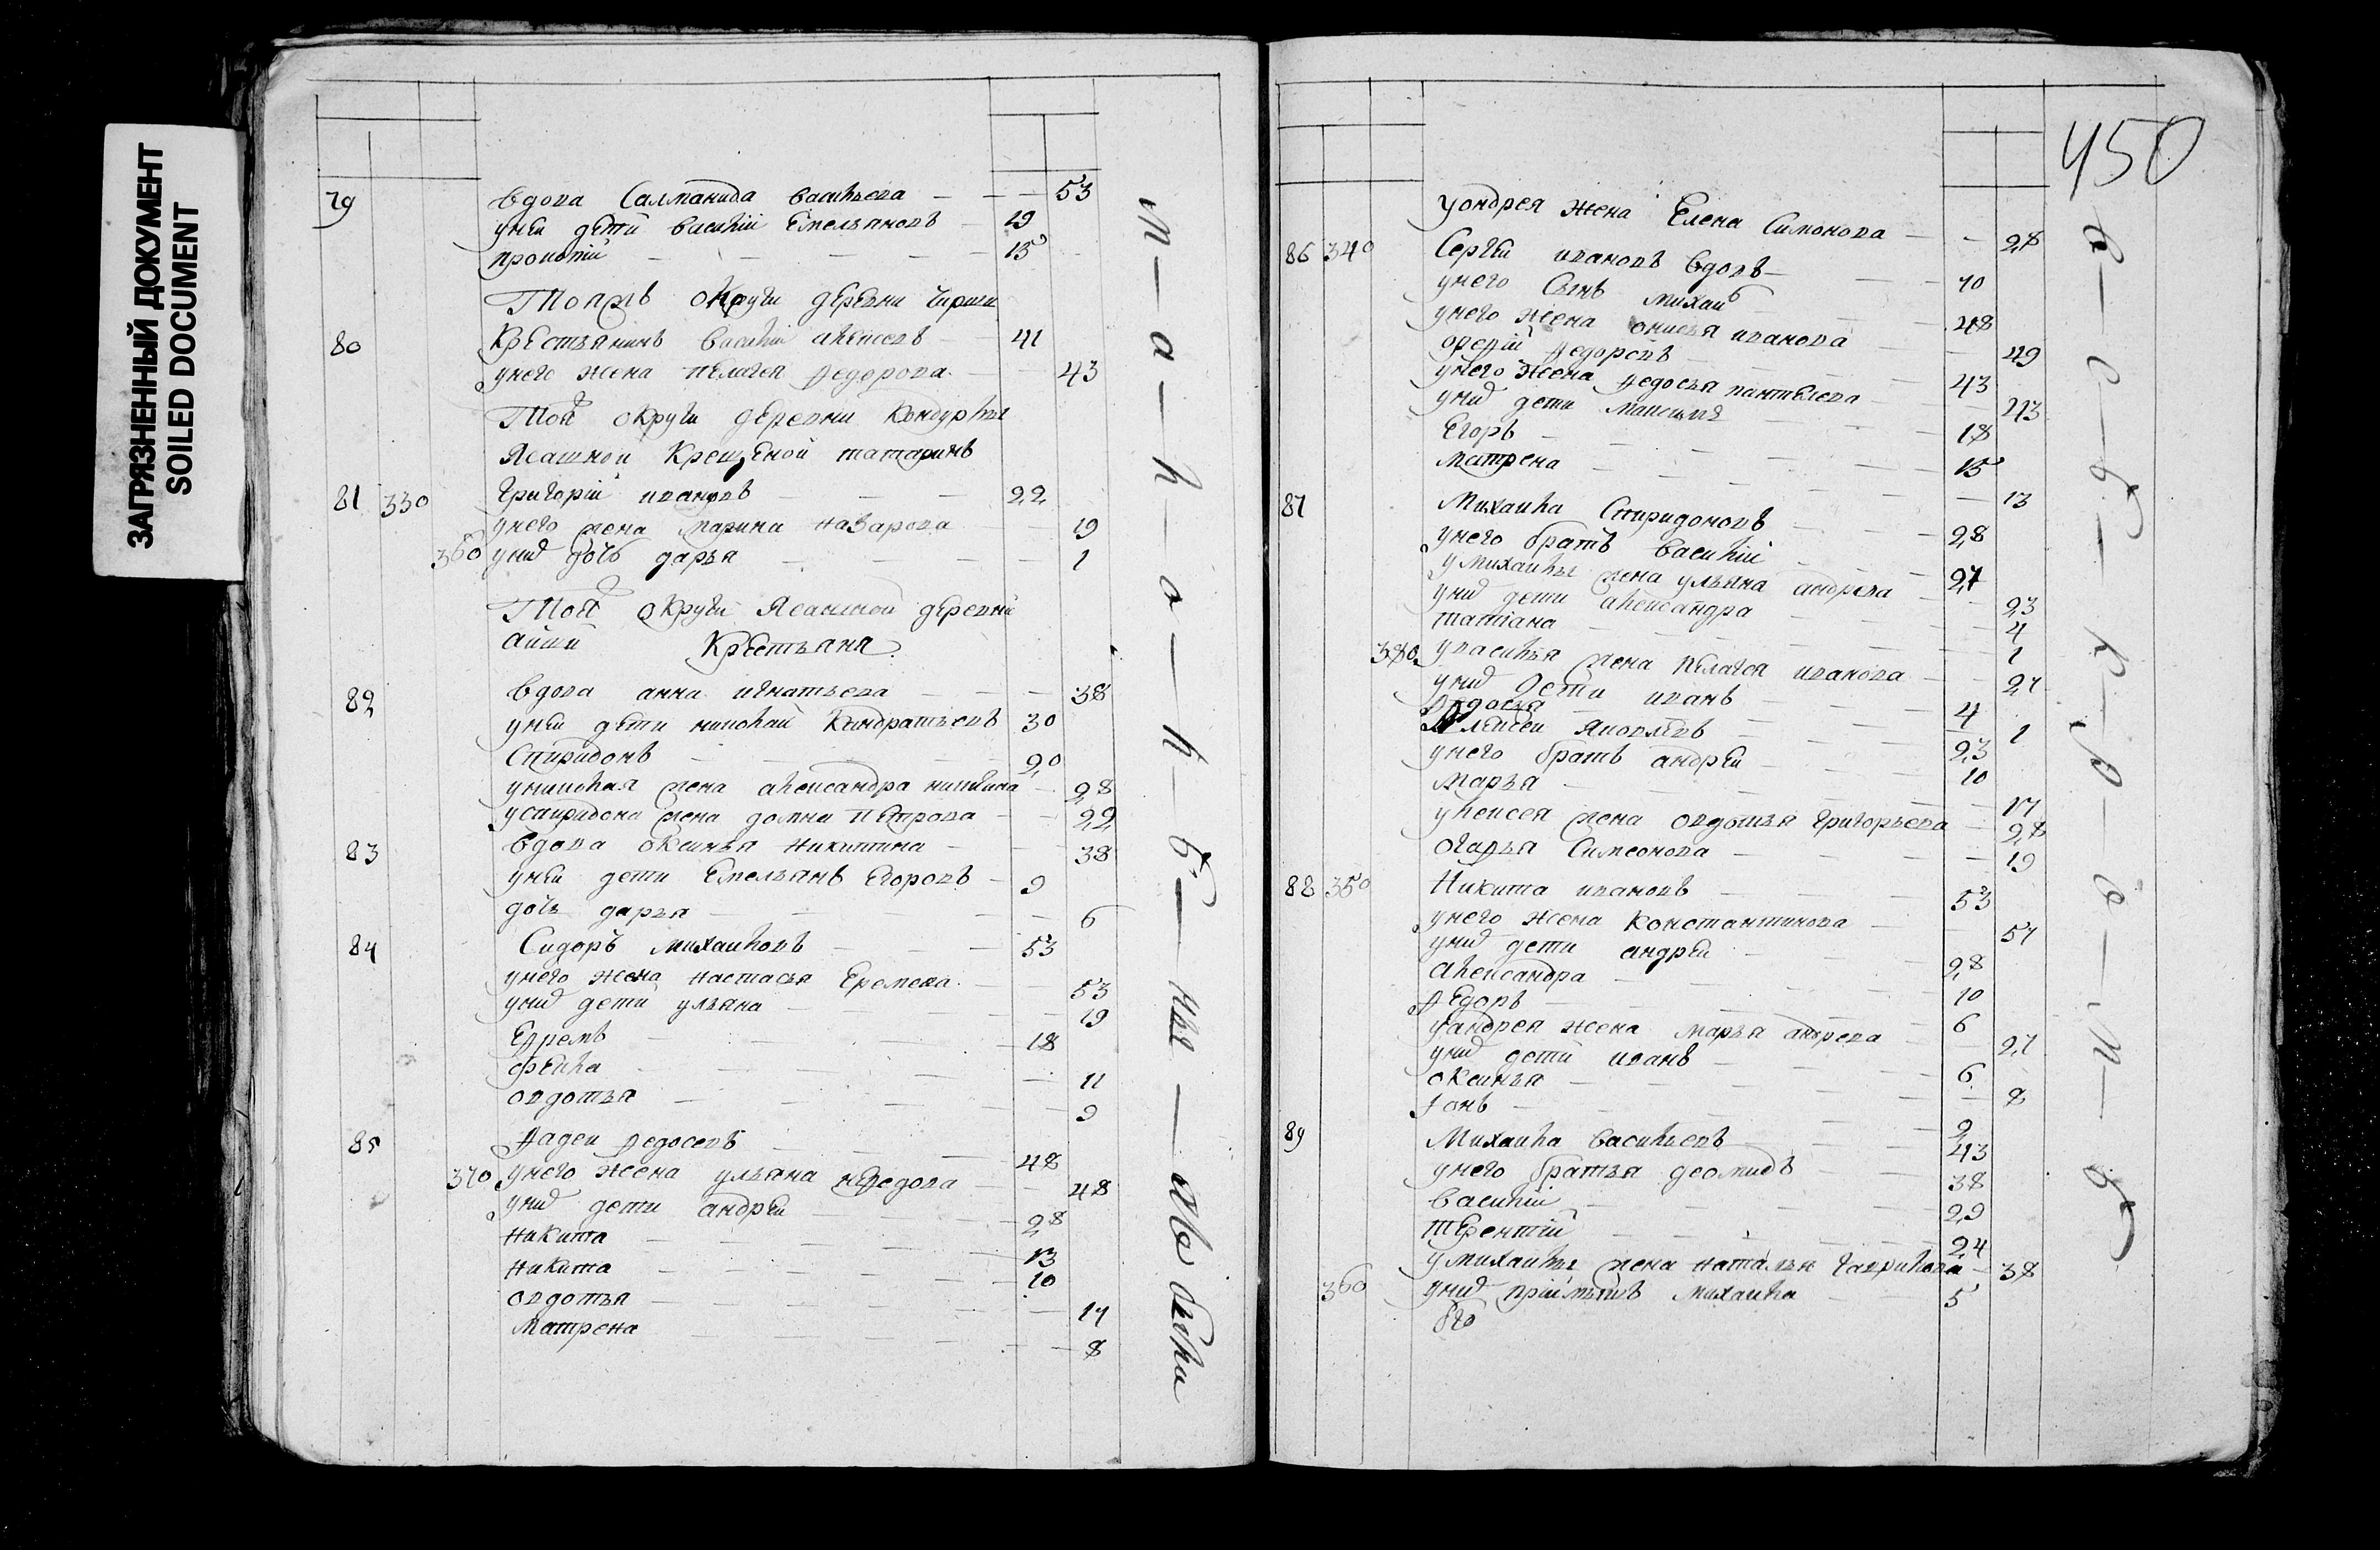 ЗАГРЯЗНЕННЫЙ ДОКУМЕНТ
SOILED DOCUMENT
79 вдова Салманида васильева 53
уней дети василий Емельяновъ 19
прокопий 15
Тояжъ округи деревни
80 Крестьянинъ василий алексеевъ 41
унего жена пелагея федорова 43
Той округи деревни
Ясашной Крещеной татаринъ
81 330 григорий ивановъ 22
унего жена марина назарова 19
360 унихъ дочь дарья 1
Той округи Ясашной деревни
Крестьяня
82 вдова анна игнатьева 38
уней дети николай Кандратьевъ 30
Спиридонъ 20
униколая жена александра никитина 28
успиридона жена домна петрова 22
83 вдова оксинья никитина 38
уней дети Емельянъ Егоровъ 9
дочь дарья 6
84 Сидоръ михаиловъ 53
унего жена настасья Еремеева 53
унихъ дети ульяна 19
Ефремъ 18
фекла 11
овдотья 9
85 фадеи федосеевъ 48
370 унего жена ульяна нефедова 48
унихъ дети андрей 28
никита 13
никита 10
овдотья 17
матрена 8
450
уондрея жена Елена Симонова 28
86 340 Сергей ивановъ вдовъ 70
унего Сынъ михаила 48
унего жена онисья иванова 49
федоровъ 43
унего жена федосья пантелеева 43
унихъ дети 18
Егоръ 15
матрена 13
87 Михаила Спиридоновъ 28
унего братъ василий 27
умихаилы жена ульяна андреева 23
унихъ дети александра 4
татиана 1
380 увасилья жена пелагея иванова 27
унихъ дети иванъ 4
федосья 1
Алексеи яковлевъ 23
унего братъ андрей 10
марья 17
уалексея жена овдотья григорьева 28
Симеонова 19
88 350 Никита ивановъ 53
унего жена Константинова 57
унихъ дети андрей 28
александра 10
федоръ 6
уандрея жена марья андреева 27
унихъ дети иванъ 6
оксинья 8
2
89 Михаила васильевъ 43
унего братья деомидъ 38
василий 29
терентий 24
умихаилы жена наталья гаврилова 38
360 унихъ приимышъ михаила 5